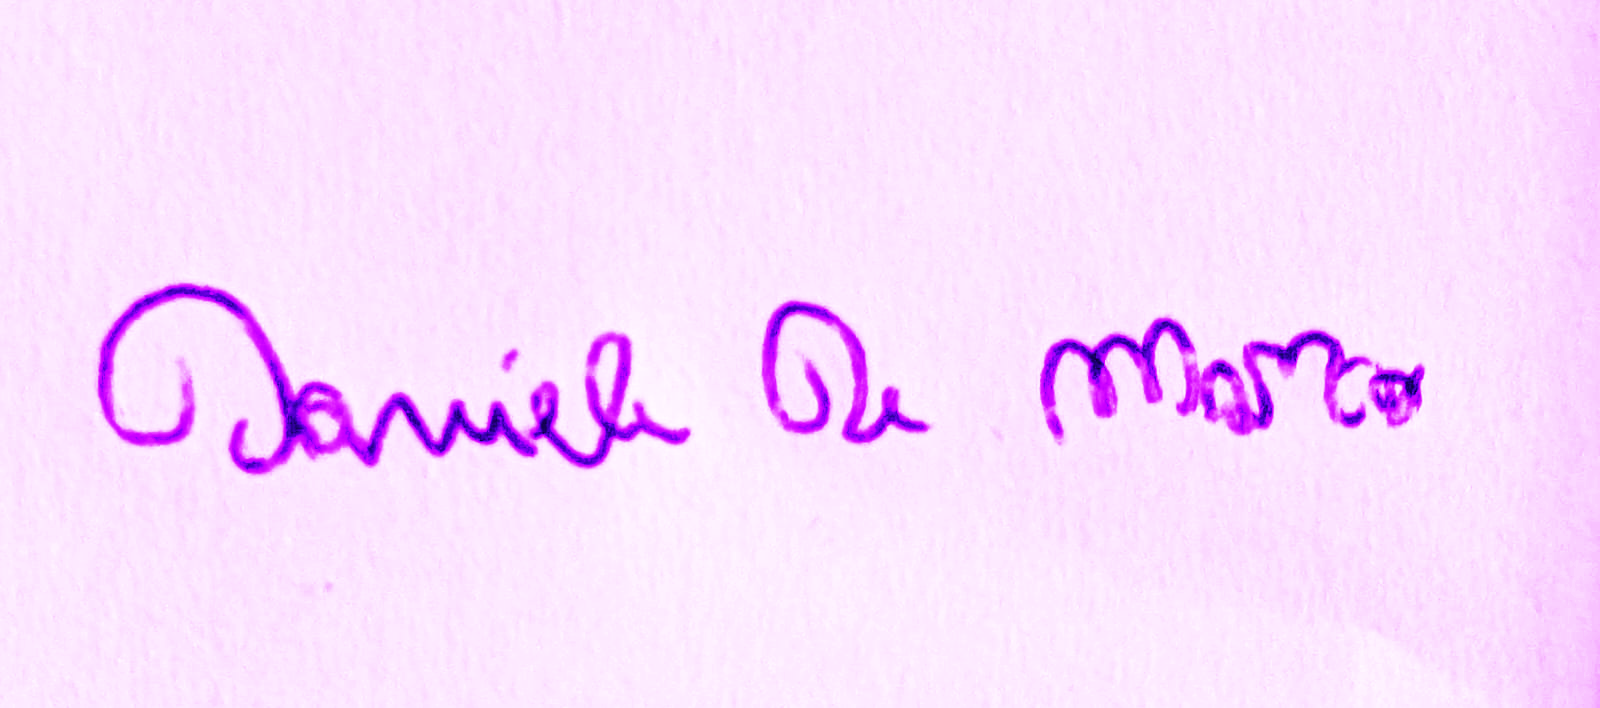 Daniele De Marco